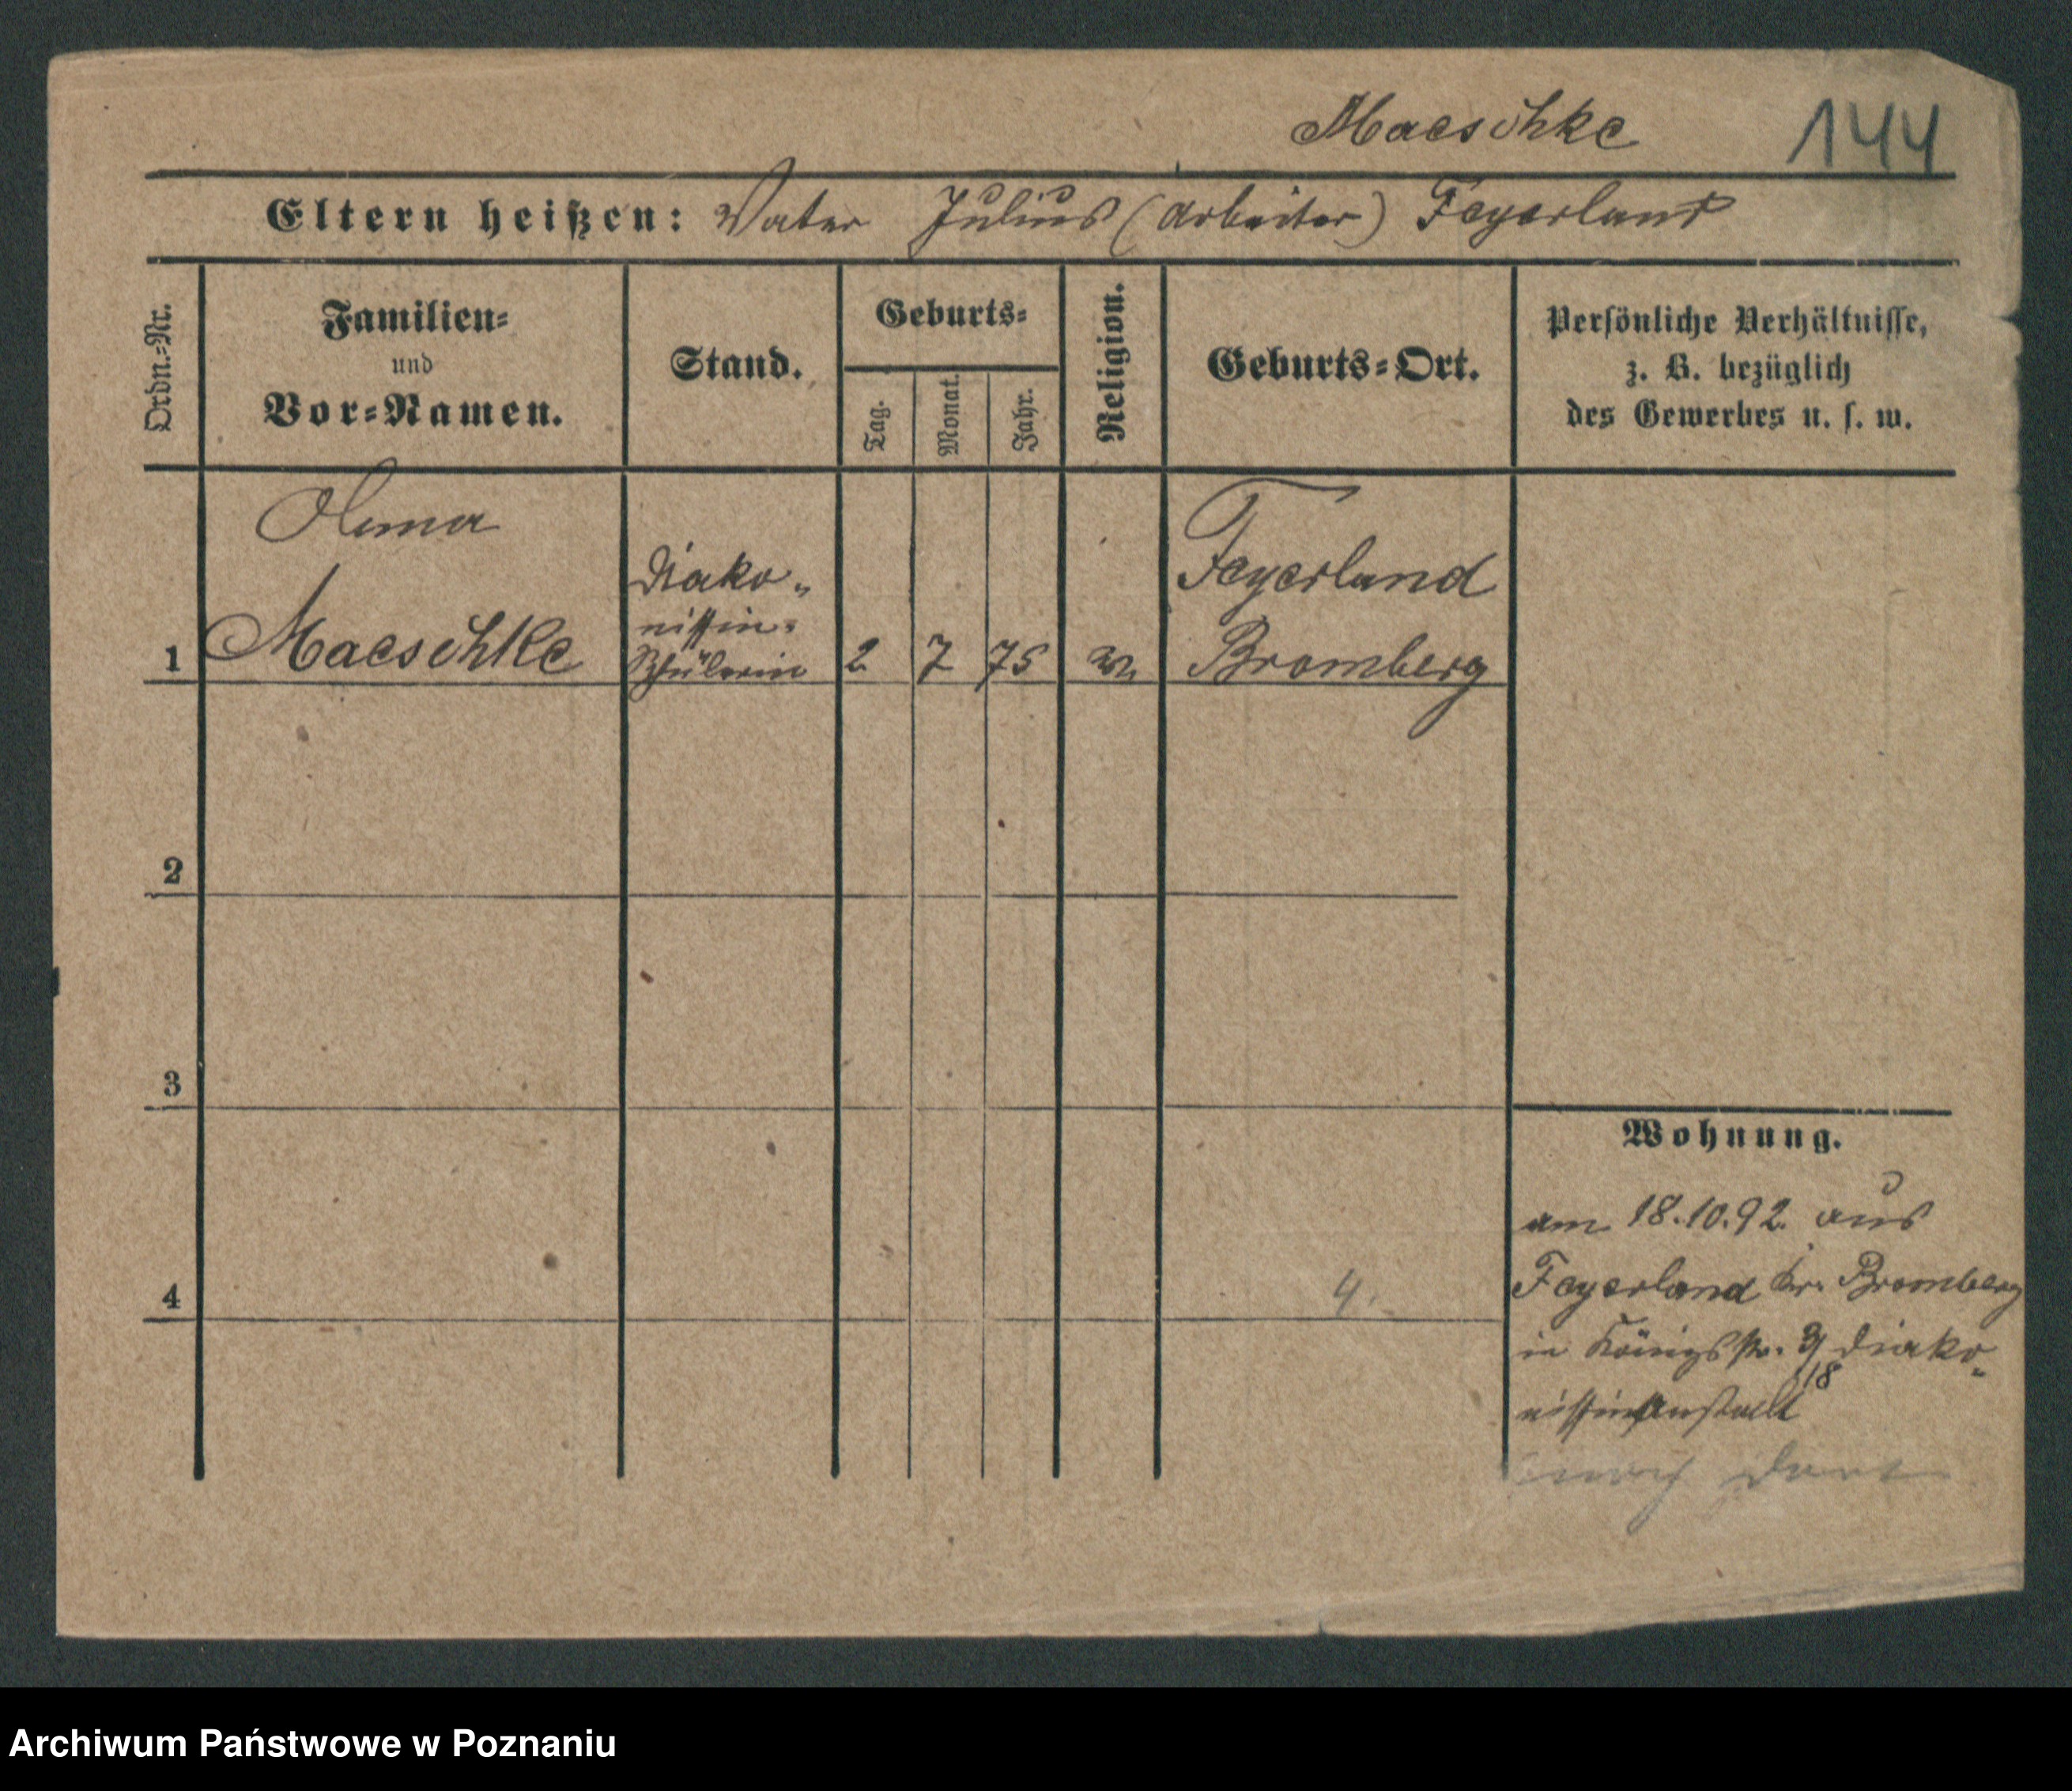 Maeschke 144
Eltern heißen: Vater Julius (Arbeiter) Feyerland
Ordn.-Nr.
Familien-
und
Vor-Namen.
Stand.
Geburts-
Tag.
Monat.
Jahr.
Religion.
Geburts-Ort.
Persönliche Verhältnisse,
z. B. bezüglich
des Gewerbes u. s. w.
1
Maeschke
Diako-
nissin-
Schülerin
2 7 75
Feyerland
Bromberg
2
3
4
4.
Wohnung.
am 18.10.92. aus
Feyerland Kr. Bromberg
in Königsstr. Diako-
18
nissinanstalt
noch dort
Archiwum Państwowe w Poznaniu